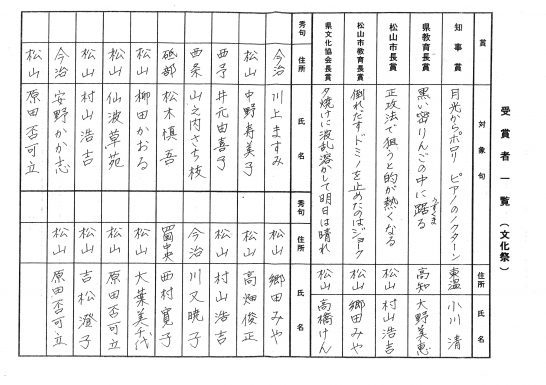 受賞者一覧（文化祭）
賞 対象句 住所 氏名
知事賞 月光からポロリ ピアノのノクターン 東温 小川 清
県教育長賞 黒い密りんごの中に踞る うずくま 高知 大野美恵
松山市長賞 正攻法で狙うと的が熱くなる 松山 村山浩吉
松山市教育長賞 倒れだすドミノを止めたのはジョーク 松山 郷田みや
県文化協会長賞 夕焼けに波乱溶かして明日は晴れ 松山 高橋けん
秀句 住所 氏名
今治 川上ますみ
松山 中野寿美子
西予 井元由喜子
西条 山之内さち枝
砥部 松木慎吾
松山 柳田かおる
松山 仙波草苑
松山 村山浩吉
今治 安野かか志
松山 原田否可立
秀句 住所 氏名
松山 郷田みや
松山 高畑俊正
松山 村山浩吉
今治 川又暁子
四国中央 西村寛子
松山 大葉美千代
松山 原田否可立
松山 吉松澄子
松山 原田否可立